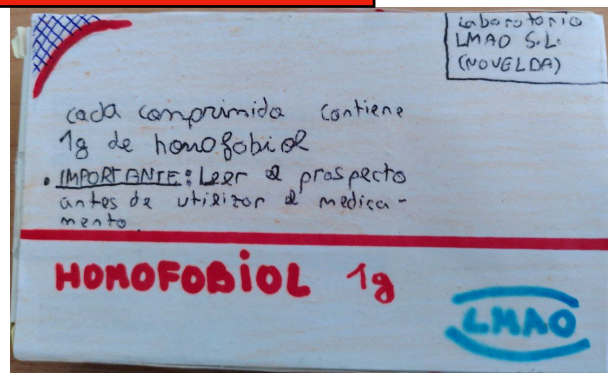 Laboratorio
LMAO S.L.
(NOVELDA)
cada comprimido contiene
1g de homofobiol
• IMPORTANTE: Leer el prospecto
antes de utilizar el medica-
mento
HOMOFOBIOL 1g
LMAO